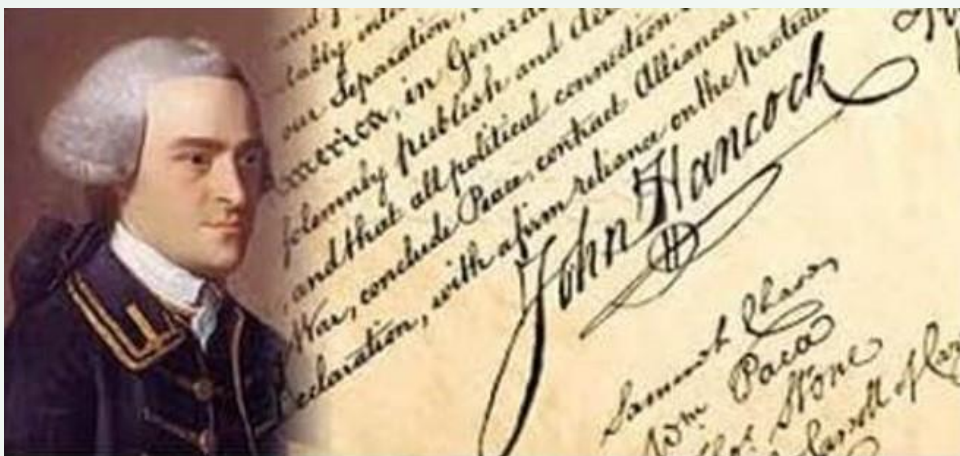 and
tably into
our Separation,
America, in General
solemnly publish and dec
and that all political connection
War, conclude Peace, contract Alliances,
Declaration, with a firm reliance on the protectio
John Hancock
H
Samuel Chase
Wm Paca
Thos Stone
Carroll of Car